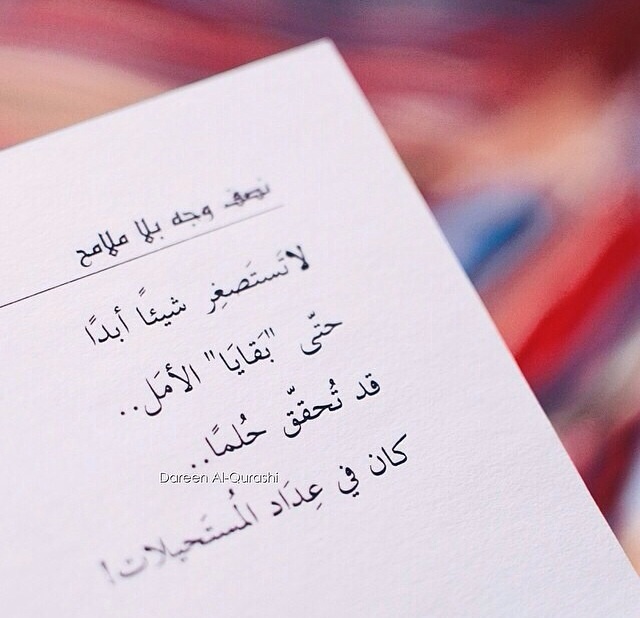 نصف وجه بلا ملامح
لاتَستَصغِر شيئاً أبدًا
حتّى "بَقايَا" الأمَل..
قد تُحقّق حُلمًا..
Dareen Al-Qurashi
كان في عِدَاد المُستَحيلات!